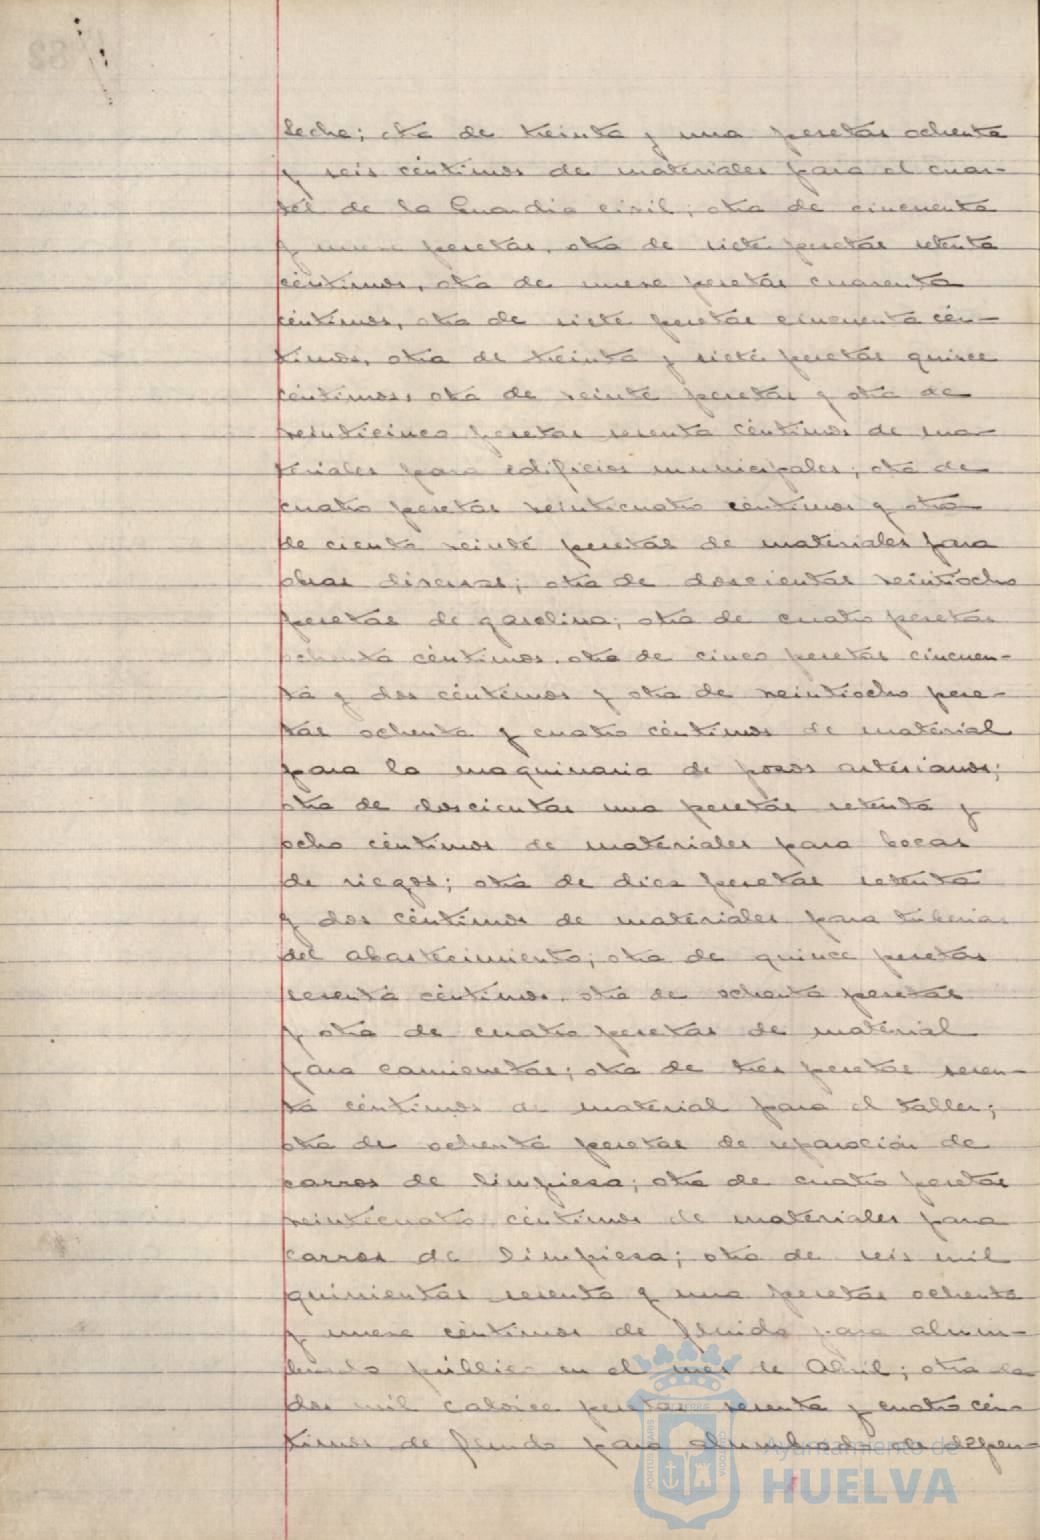 leche; otra de treinta y una pesetas ochenta
y seis céntimos de materiales para el cuar-
tel de la Guardia civil; otra de cincuenta
y nueve pesetas, otra de siete pesetas setenta
céntimos, otra de nueve pesetas cuarenta
céntimos, otra de siete pesetas cincuenta cén-
timos, otra de treinta y siete pesetas quince
céntimos, otra de veinte pesetas y otra de
veinticinco pesetas sesenta céntimos de ma-
teriales para edificios municipales; otra de
cuatro pesetas veinticuatro céntimos y otra
de ciento veinte pesetas de materiales para
obras diversas; otra de doscientas veintiocho
pesetas de gasolina; otra de cuatro pesetas
ochenta céntimos, otra de cinco pesetas cincuen-
ta y dos céntimos y otra de veintiocho pese-
tas ochenta y cuatro céntimos de material
para la maquinaria de pozos artesianos;
otra de doscientas una pesetas setenta y
ocho céntimos de materiales para bocas
de riegos; otra de diez pesetas setenta
y dos céntimos de materiales para tuberias
del abastecimiento; otra de quince pesetas
sesenta céntimos, otra de ochenta pesetas
y otra de cuatro pesetas de material
para camionetas; otra de tres pesetas sesen-
ta céntimos de material para el taller;
otra de ochenta pesetas de reparación de
carros de limpiesa; otra de cuatro pesetas
veinticuatro céntimos de materiales para
carros de limpiesa; otra de seis mil
quinientas sesenta y una pesetas ochenta
y nueve céntimos de fluido para alum-
brado público en el mes de Abril; otra de
dos mil catorce pesetas sesenta y cuatro cén-
timos de fluido para alumbrado de depen-
Ayuntamiento de
HUELVA